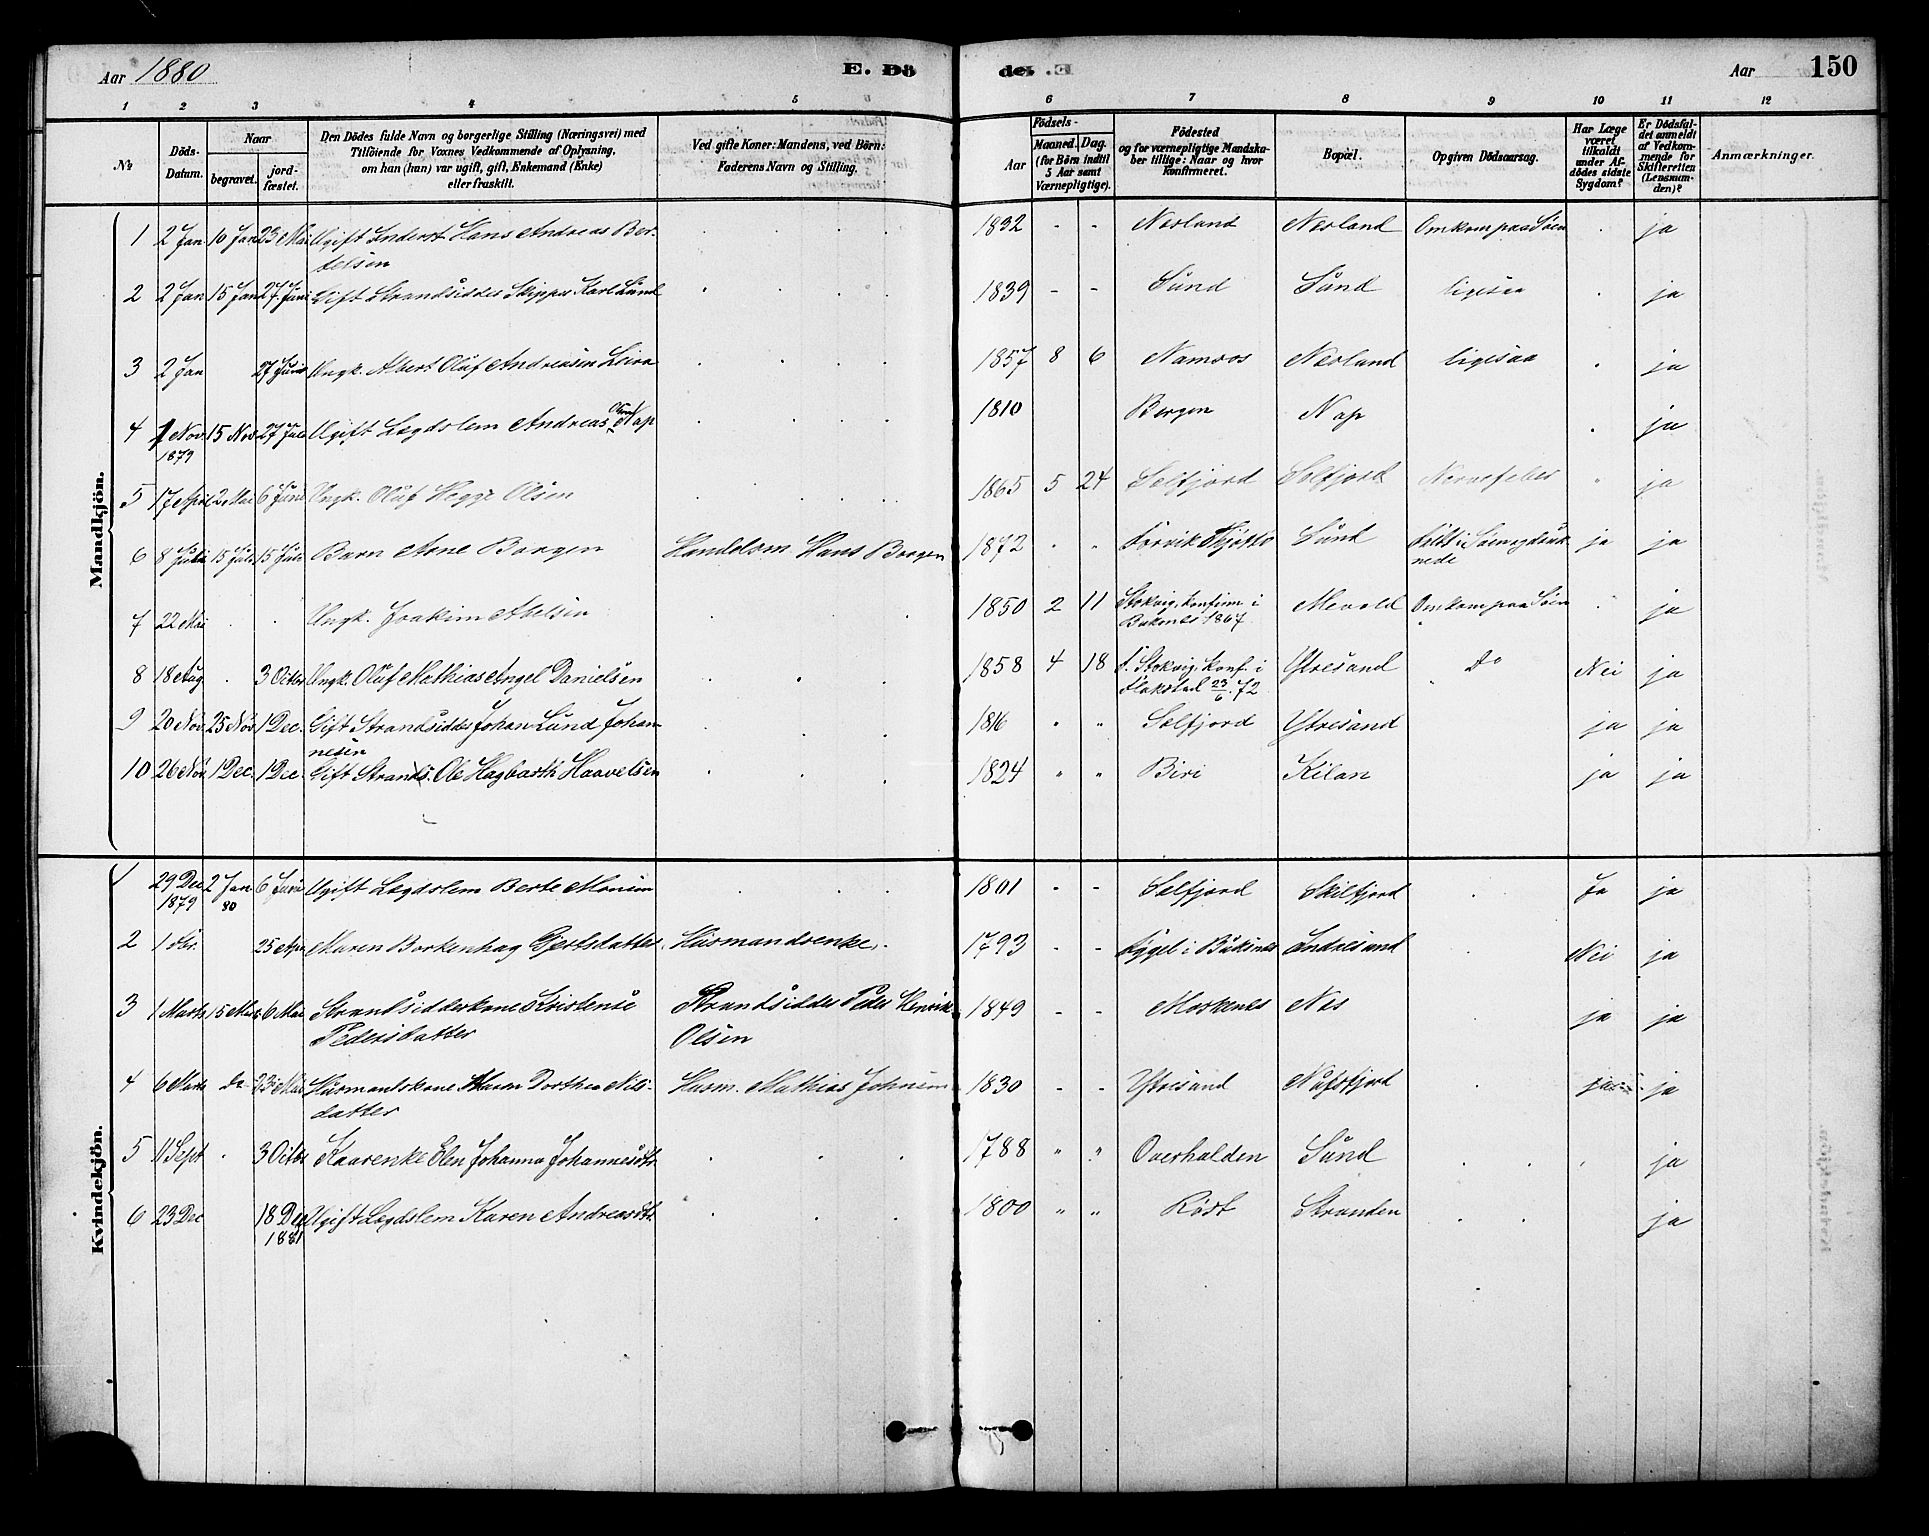 Aar 1880 E. Dö
de. Aar 150
1 2 3 4 5
6 7 8 9 10 11 12
No
Döds-Datum.
Naar
begravet.
jord-fæstet.
Den Dödes fulde Navn og borgerlige Stilling (Næringsvei) med
Tilföiende for Voxnes Vedkommende af Oplysning,
om han (hun) var ugift, gift, Enkemand (Enke)
eller fraskilt.
Ved gifte Koner: Mandens, ved Börn:
Faderens Navn og Stilling.
Födsels-
Aar
Maaned. Dag.
(for Börn indtil
5 Aar samt
Værnepligtige).
Födested
og for værnepligtige Mandska-
ber tillige: Naar og hvor
konfirmeret.
Bopæl.
Opgiven Dödsaarsag.
Har Læge
været
tilkaldt
under Af-
dödes sidste
Sygdom?
Er Dödsfal-
det anmeldt
af Vedkom-
mende for
Skifteretten
(Lensman-
den)?
Anmærkninger.
Mandkjön.
1 2 Jan 10 Jan 23 Mai Ugift Inderst Hans Andreas Ber-
telsen
1832 - - Nesland Nesland Omkom paa Söen ja
2 2 Jan 15 Jan 27 Juni Gift Strandsidder Skipper Karl Lund
1839 - - Sund Sund ligesaa ja
3 2 Jan 27 Juni Ungk. Albert Oluf Andreasen Leira
1857 8 6 Namsos Nesland ligesaa ja
4 1 Nov 15 Nov 27 Jul Ugift Lægdslem Andreas Nap
1879
1810 Bergen Nap ja
5 17 April 2 Mai 6 Juni Ungk. Oluf Hegge Olsen
1865 5 24 Selfjord Selfjord Nervefeber ja
6 8 Juli 15 Juli 15 Juli Barn Arne Borgen Handelsm. Hans Borgen
1872 Forvik Thjötto Sund Faldt i Söen og druk-
nede ja ja
7 22 Mai Ungk. Joakim Abelsen
1850 2 11 Stokvig, konfirm i
Buksnes 1867 Mevold Omkom paa Söen ja
8 18 Aug 3 Octbr Ungk. Oluf Mathias Angel Danielsen
1858 4 18 F. Stokvig, Konf. i
Flakstad 23/6 72 Ytresand do Nei ja
9 20 Nov 25 Nov 1 Dec. Gift Strandsidder Johan Lund Johan-
nesen
1816 " " Selfjord Ytresand ja ja
10 26 Nov. 1 Dec. 1 Dec. Gift Strands. Ole Hagbarth Haavelsen
1824 " " Biri Kilan ja ja
Kvindekjön.
1 29 Dec 2 Jan 6 Juni Ugift Lægdslem Berte Monsen
1879 80
1801 - - Selfjord Skilfjord Ja ja
2 25 Apr. Maren Borkenhag Gjertsdatter. Husmandsenke.
1793 - - Rygel i Buksnes Indresand Nei ja
3 1 Marts 15 Mar 6 Mai Strandsidderkone Kristense
Pedersdatter
Strandsidder Peder Henrik
Olsen
1849 - - Moskenes Næs ja ja
4 6 Marts do 23 Mai Husmandskone Maren Dorthea Nils-
datter
Husm. Mathias Johnsen
1830 - - Ytresand Nufsfjord ja ja
5 11 Sept 3 Octbr Kaarenke Elen Johanna Johannesdtr.
1788 " " Overhalden Sund ja
6 23 Dec 18 Dec Ugift Lægdslem Karen Andreasdtr.
1881
1800 " " Röst Stranden ja